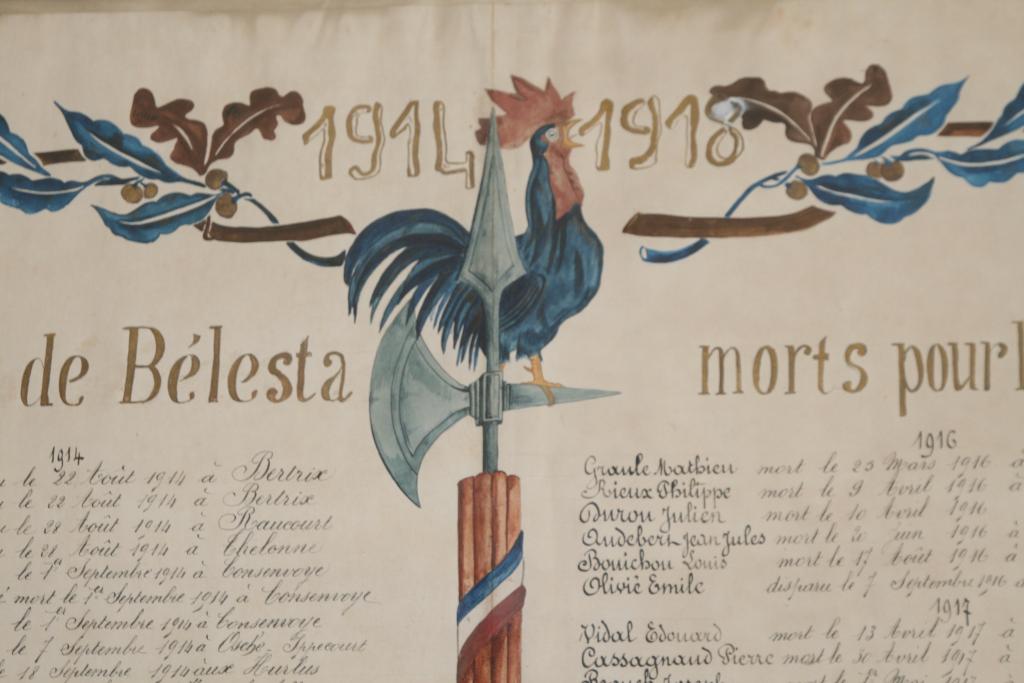 1914 1918
de Bélesta
morts pour
1914
le 22 Août 1914 à Bertrix
le 22 Août 1914 à Bertrix
le 28 Août 1914 à Raucourt
le 28 Août 1914 à Thelonne
le 1er Septembre 1914 à Consenvoye
mort le 1er Septembre 1914 à Consenvoye
le 1er Septembre 1914 à Consenvoye
le 7 Septembre 1914 à Osche-Ippecourt
le 18 Septembre 1914 aux Hurlus
1916
Graule Mathieu mort le 23 Mars 1916 à
Rieux Philippe mort le 9 Avril 1916 à
Durou Julien mort le 10 Avril 1916
Audebert Jean Jules mort le 20 Juin 1916 à
Bouichou Louis mort le 17 Août 1916 à
Olivié Emile disparu le 7 Septembre 1916
1917
Vidal Edouard mort le 13 Avril 1917 à
Cassagnaud Pierre mort le 30 Avril 1917 à